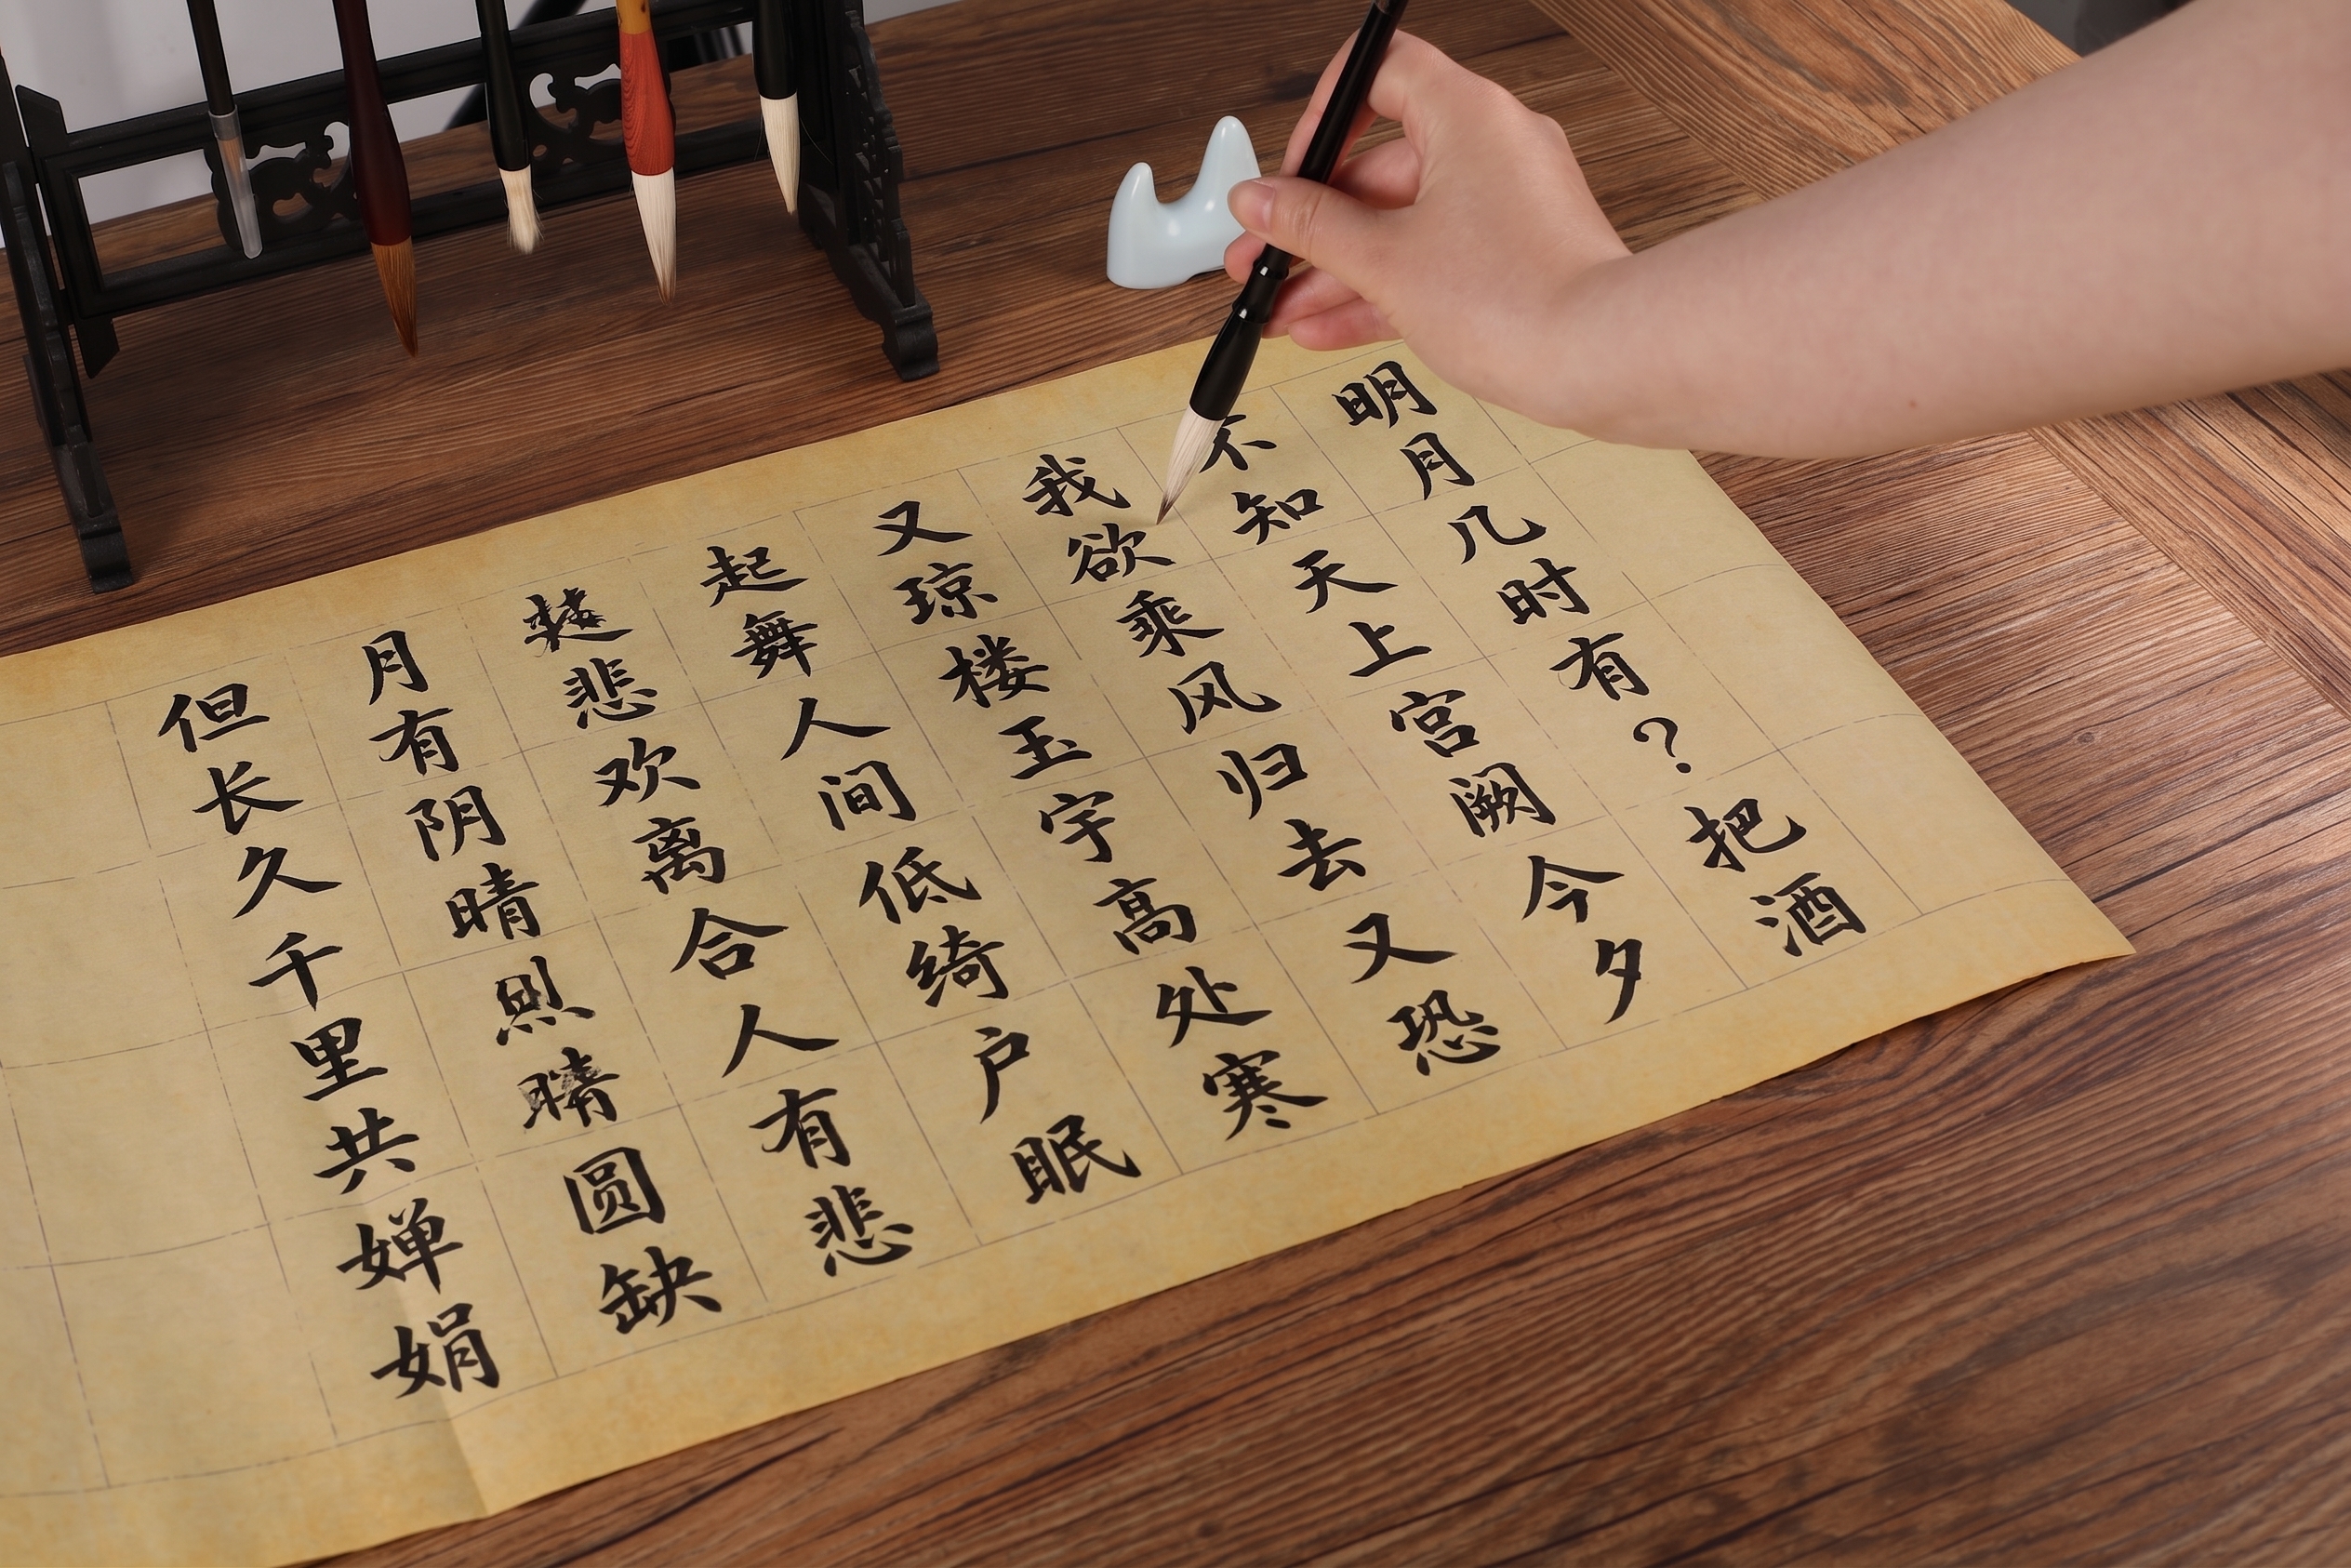 明月几时有？把酒
不知天上宫阙今夕
我欲乘风归去又恐
又琼楼玉宇高处寒
起舞人间低绮户眠
悲欢离合人有悲
月有阴晴圆缺
但长久千里共婵娟